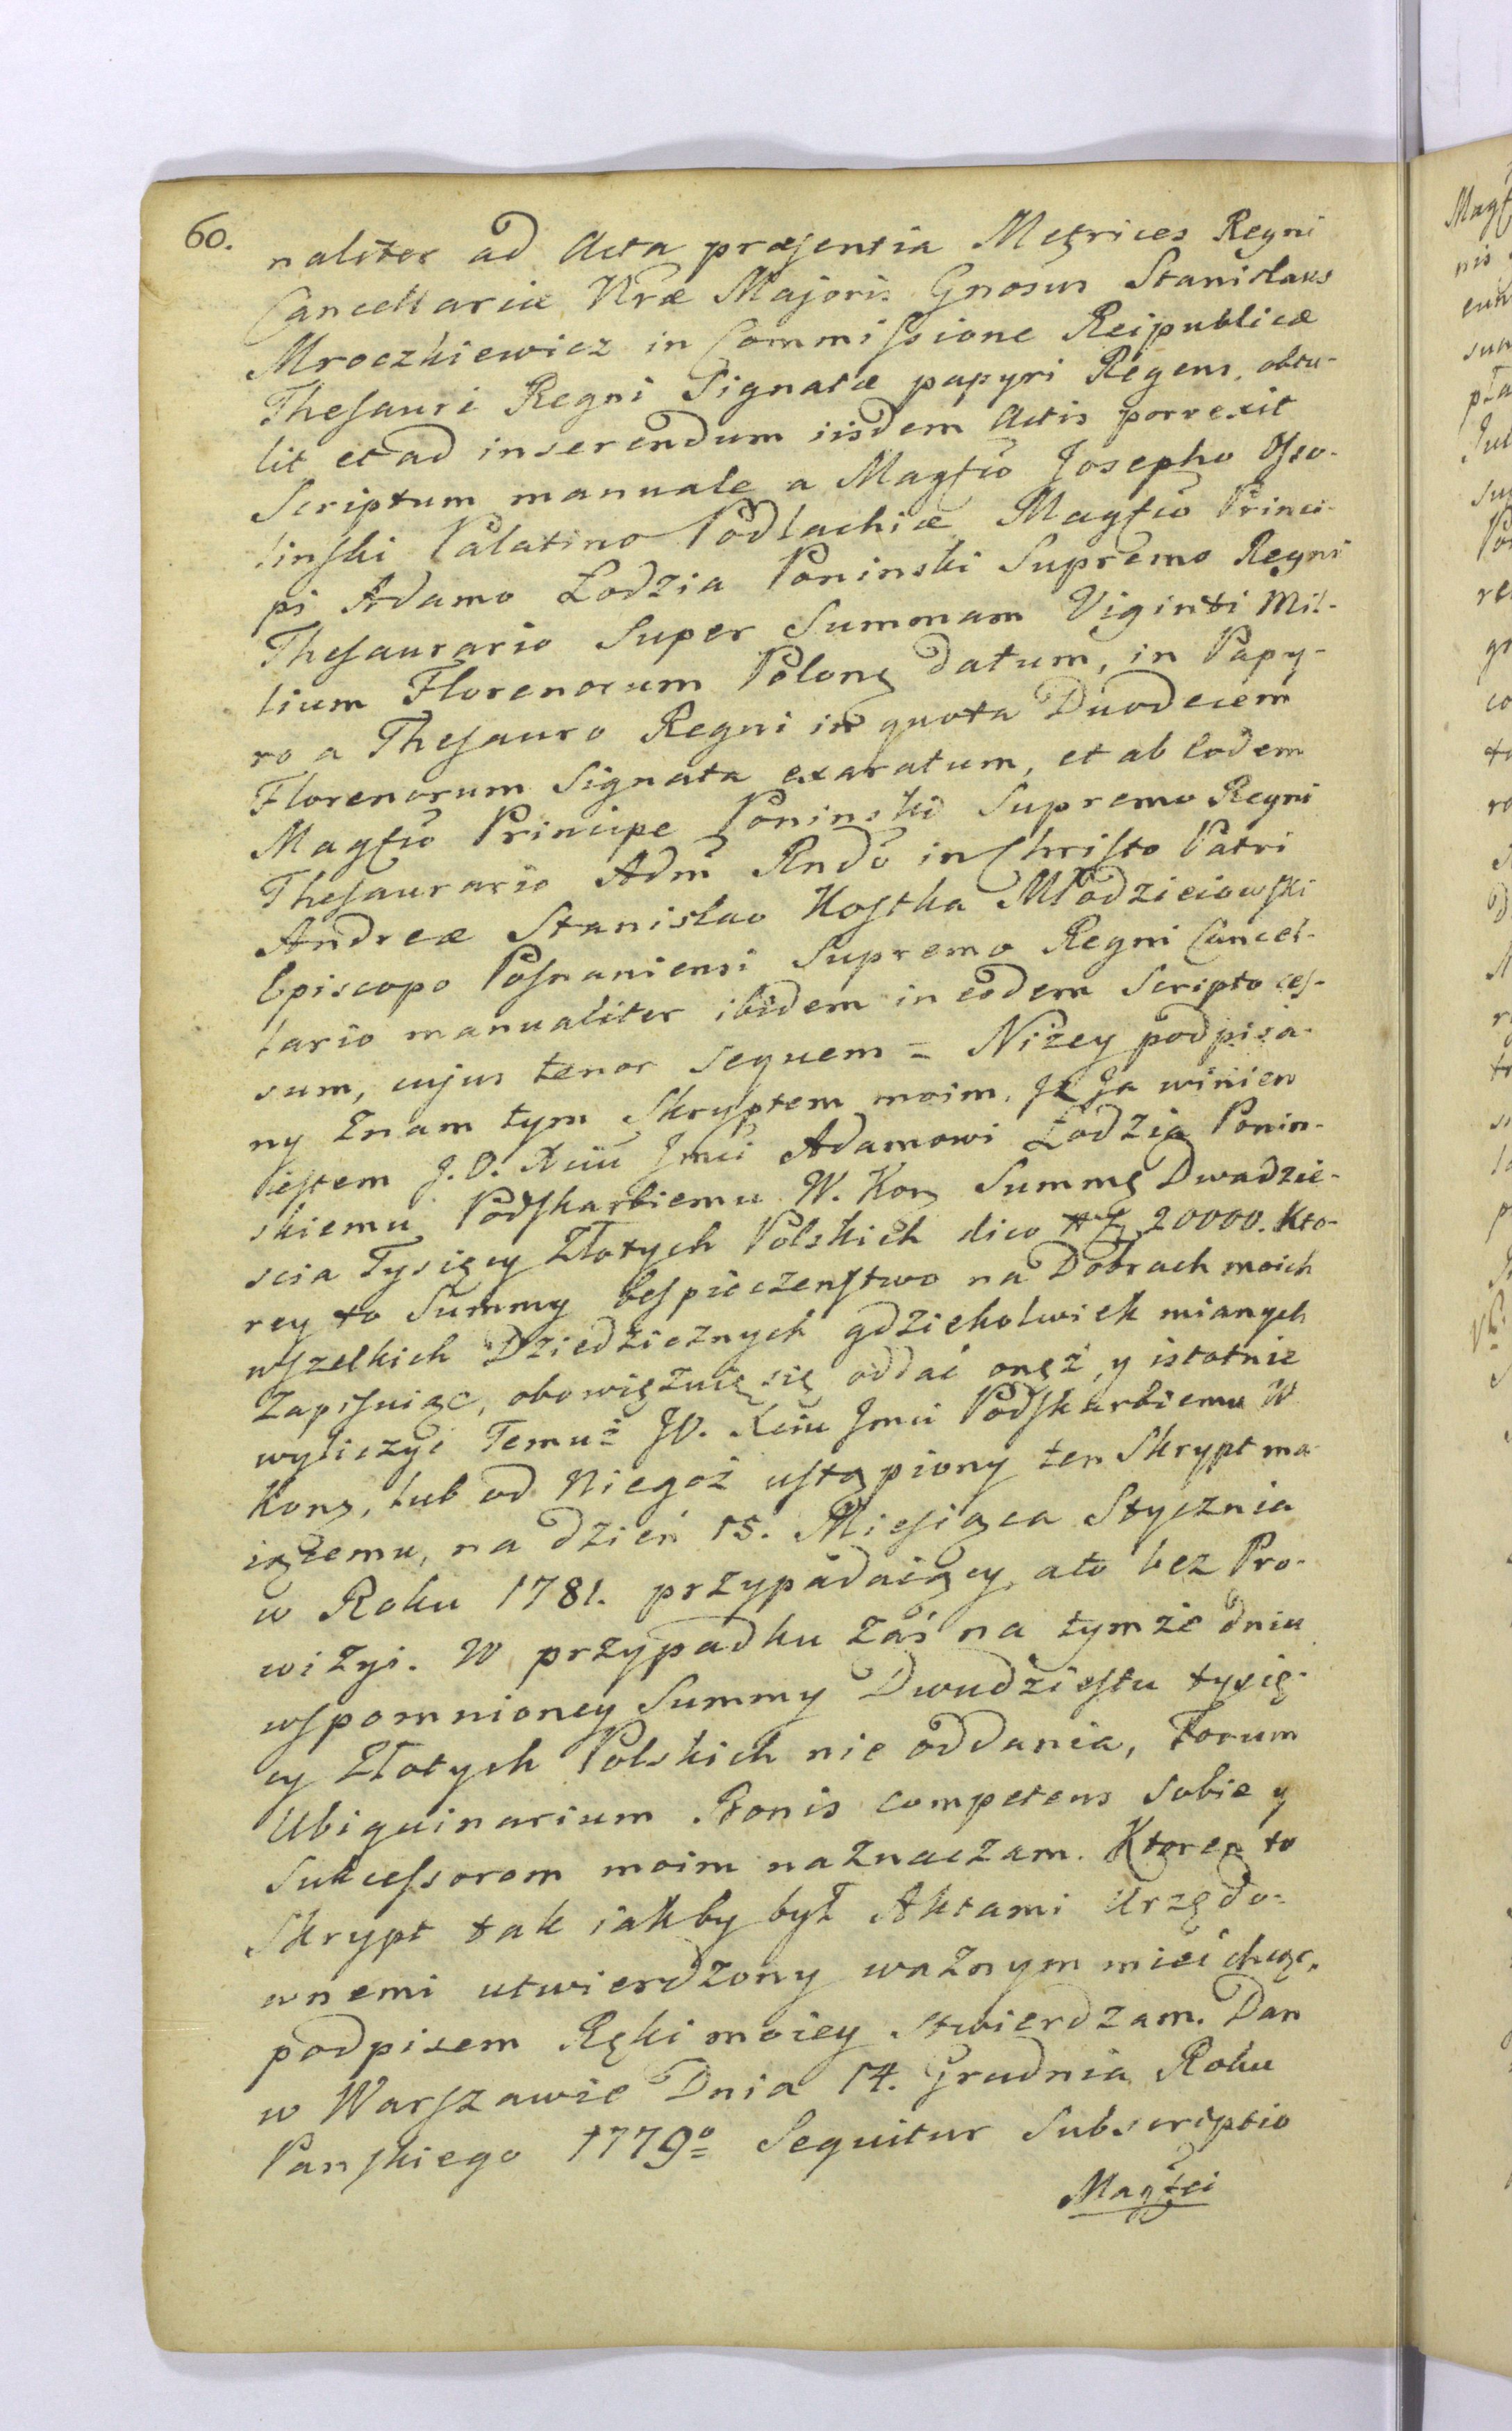 60.
naliter ad Acta præsentia Metrices Regni
Cancellariæ Nræ Majoris Gnosus Stanislaus
Mroczkiewicz in Commissione Reipublicæ
Thesauri Regni Signatæ papyri Regens, obtu-
lit et ad inserendum iisdem Actis porrexit
Scriptum manuale a Magfco Josepho Osso-
linski Palatino Podlachiæ Magfco Princi-
pi Adamo Łodzia Poninski Supremo Regni
Thesaurario Super Summam Viginti Mil-
lium Florenorum Polong datum, in Papy-
ro a Thesauro Regni in quota Duodecem
Florenorum Signata exaratum, et ab eodem
Magfco Principe Poninski Supremo Regni
Thesaurario Adm Rndo in Christo Patri
Andreæ Stanislao Kostka Młodzieiowski
Episcopo Posnaniensi Supremo Regni Cancel-
lario manualiter ibidem in eodem Scripto ces-
sum, cujus tenor sequem = Niżey podpisa-
ny Znam tym Skryptem moim, Jż Ja winien
iestem J. O. Xciu Jmci Adamowi Łodzia Ponin-
skiemu Podskarbiemu W. Kor Summę Dwadzie-
scia Tysięcy Złotych Polskich dico 20000. Kto-
rey to Summy bespieczenstwo na Dobrach moich
wszelkich Dziedzicznych gdziekolwiek mianych
Zapisuiąc, obowięzuię się oddać onęż, y istotnie
wyliczyć Temuż JO. Xciu Jmci Podskarbiemu W
Kor, lub od Niegoż ustąpiony ten Skrypt ma-
iącemu, na dzień 15. Miesiąca Stycznia
w Roku 1781. przypadaiący, ato bez Pro-
wizyi. W przypadku zaś na tymże dniu
wspomnioney Summy Dwudziestu tysię-
cy Złotych Polskich nie oddania, Forum
Ubiquinarium Bonis competens Sobie y
Sukcessorom moim naznaczam. Ktoren to
Skrypt tak iakby był Aktami Urzędo-
wnemi utwierdzony ważnym mieć chcąc,
podpisem Ręki moiey stwierdzam. Dan
w Warszawie Dnia 14. Grudnia Roku
Panskiego 1779o = Sequitur Subscriptio
Magfci